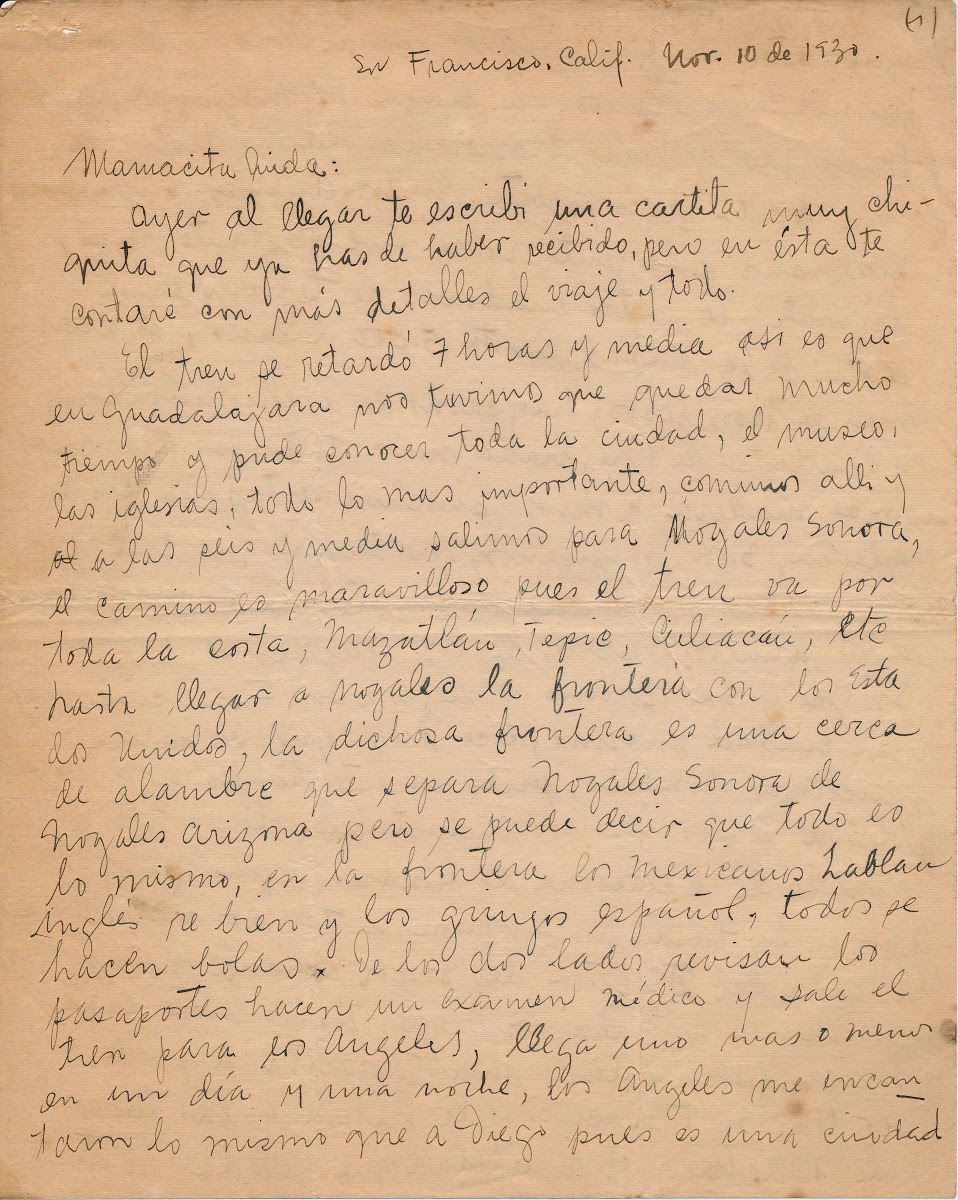 (1)
Sn Francisco. Calif. Nov. 10 de 1930.
Mamacita linda:
Ayer al llegar te escribi una cartita muy chi-
quita que ya has de haber recibido, pero en ésta te
contaré con más detalles el viaje y todo.
El tren se retardó 7 horas y media asi es que
en Guadalajara nos tuvimos que quedar mucho
tiempo y pude conocer toda la ciudad, el museo,
las iglesias, todo lo mas importante, comimos alli y
a las seis y media salimos para Nogales Sonora,
el camino es maravilloso pues el tren va por
toda la costa, Mazatlán, Tepic, Culiacán, etc
hasta llegar a Nogales la frontera con los Esta
dos Unidos, la dichosa frontera es una cerca
de alambre que separa Nogales Sonora de
Nogales Arizona pero se puede decir que todo es
lo mismo, en la frontera los mexicanos hablan
inglés re bien y los gringos español, todos se
hacen bolas. De los dos lados revisan los
pasaportes hacen un exámen médico y sale el
tren para los Angeles, llega uno mas o menos
en un día y una noche, los Angeles me encan
taron lo mismo que a Diego pues es una ciudad